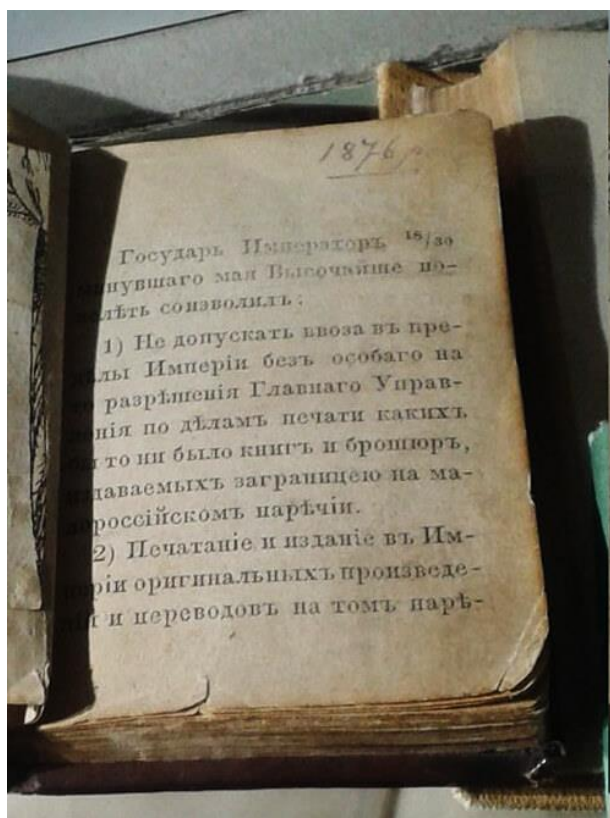 1876 р.
Государь Императоръ 18/30
минувшаго мая Высочайше по-
велѣть соизволилъ:
1) Не допускать ввоза въ пре-
дѣлы Имперіи безъ особаго на
то разрѣшенія Главнаго Управ-
ленія по дѣламъ печати какихъ
бы то ни было книгъ и брошюръ,
издаваемыхъ заграницею на ма-
лороссійскомъ нарѣчіи.
2) Печатаніе и изданіе въ Им-
періи оригинальныхъ произведе-
ній и переводовъ на томъ нарѣ-